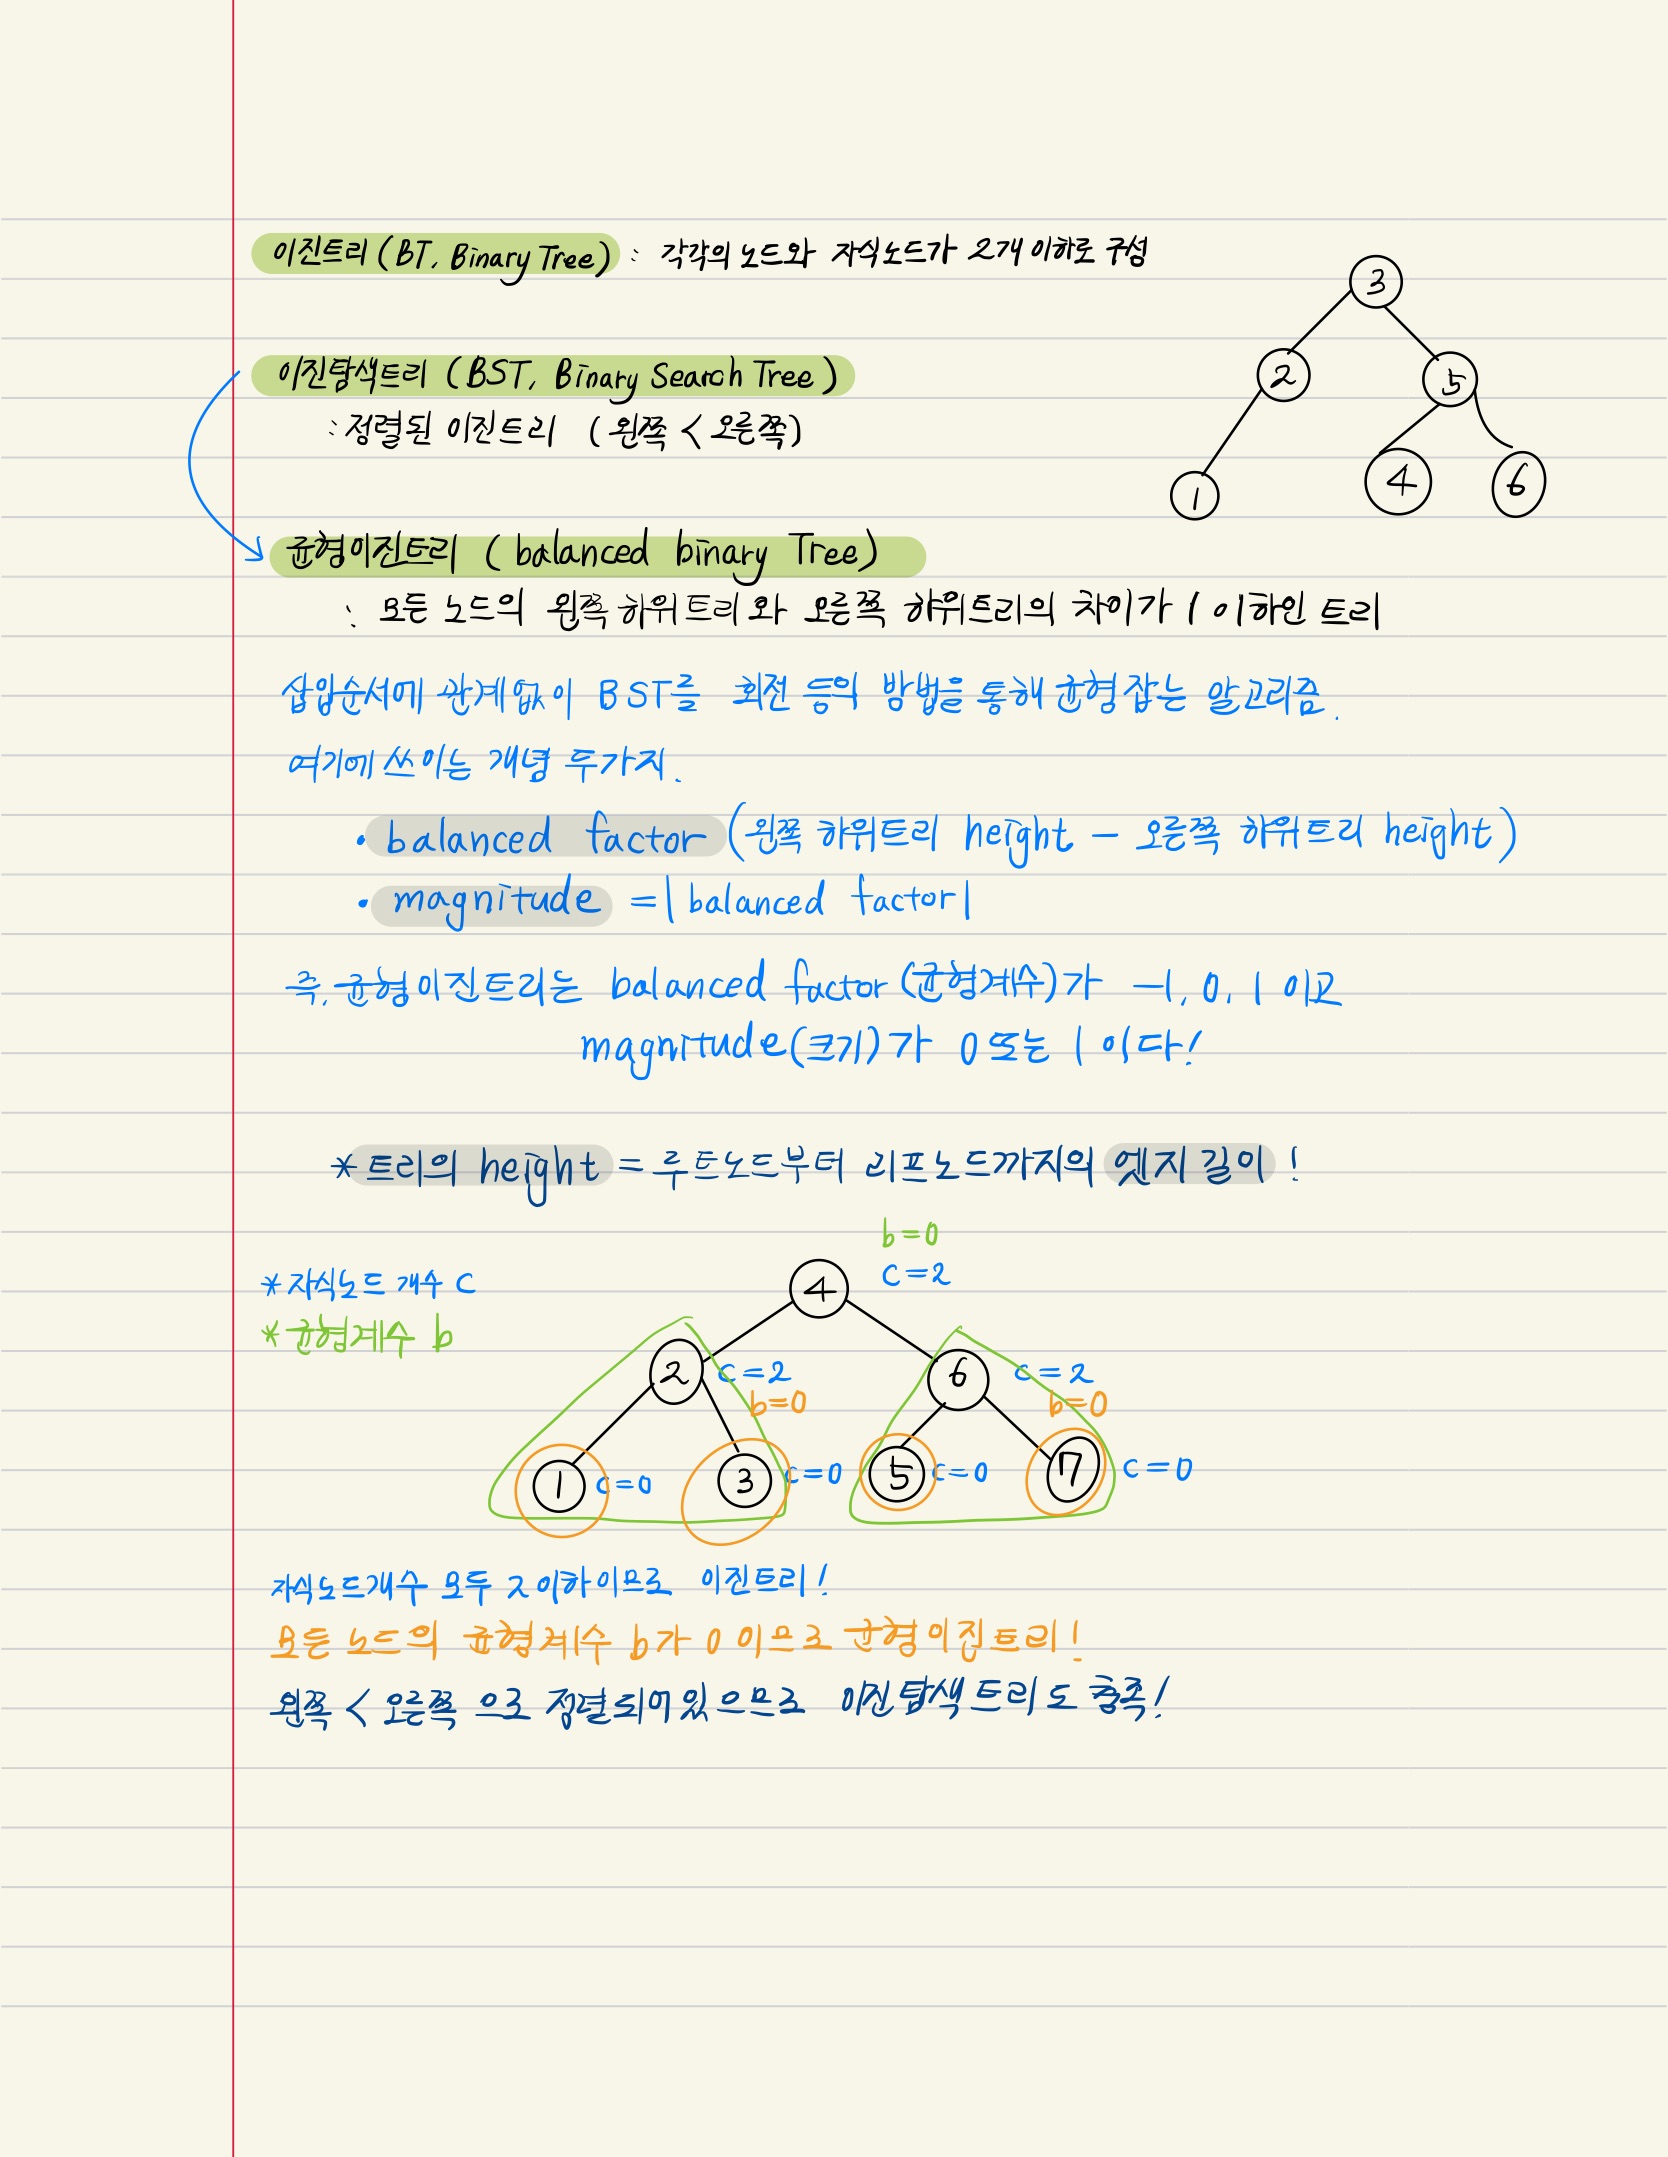 이진트리(BT, Binary Tree) : 각각의 노드와 자식노드가 2개 이하로 구성
3
2
5
이진탐색트리 (BST, Binary Search Tree)
: 정렬된 이진트리 (왼쪽 < 오른쪽)
1
4
6
균형이진트리 ( balanced binary Tree)
: 모든 노드의 왼쪽 하위트리와 오른쪽 하위트리의 차이가 1 이하인 트리
삽입순서에 관계없이 BST를 회전 등의 방법을 통해 균형잡는 알고리즘.
여기에 쓰이는 개념 두가지.
• balanced factor (왼쪽 하위트리 height - 오른쪽 하위트리 height)
• magnitude = | balanced factor |
즉, 균형이진트리는 balanced factor (균형계수)가 -1, 0, 1 이고
magnitude(크기)가 0 또는 1 이다!
* 트리의 height = 루트노드부터 리프노드까지의 엣지 길이 !
b=0
* 자식노드 개수 c
4
c=2
* 균형계수 b
2
c=2
6
c=2
b=0
b=0
1
c=0
3
c=0
5
c=0
7
c=0
자식노드개수 모두 2이하이므로 이진트리!
모든 노드의 균형계수 b가 0 이므로 균형이진트리!
왼쪽 < 오른쪽 으로 정렬되어있으므로 이진탐색트리도 충족!